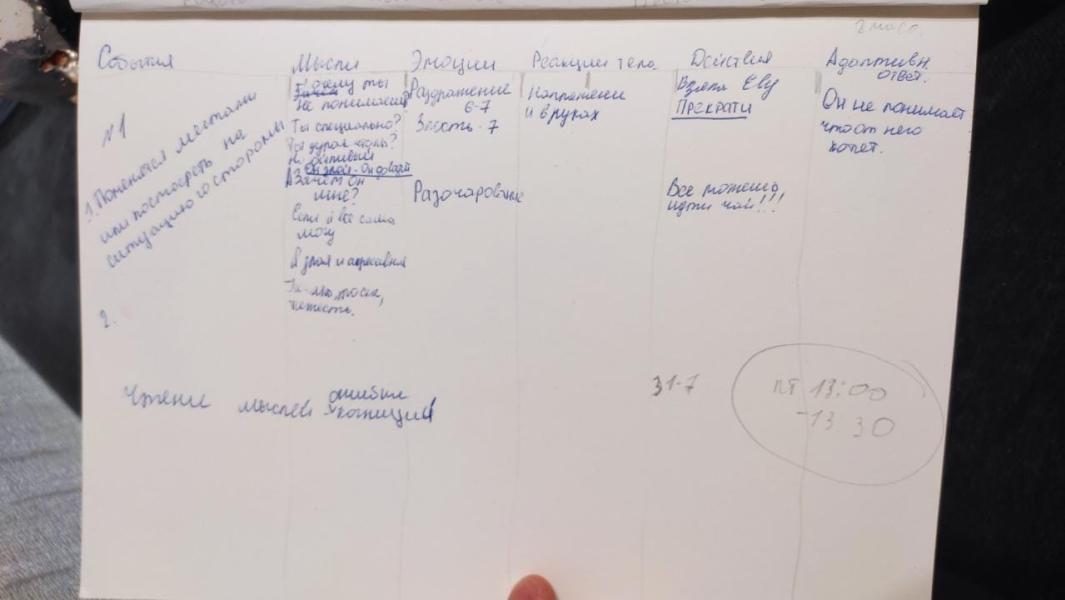 События
Мысли
Эмоции
Реакции тела.
Действия
Адаптивн.
ответ.
№1
1. Поменяться местами
или посмотреть на
ситуацию со стороны
2.
Почему ты
не понимаешь
Ты специально?
Зачем он
мне?
Если я все сама
могу
Я злая и агрессивная
Раздражение
6-7
Злость - 7
Разочарование
Напряжение
и в руках
Взяла Еву
ПРЕКРАТИ
Все можешь
идти
Он не понимает
что от него
хотят.
Чтение мыслей
ошибки
когниции
31-7
пт 13:00
-13 30